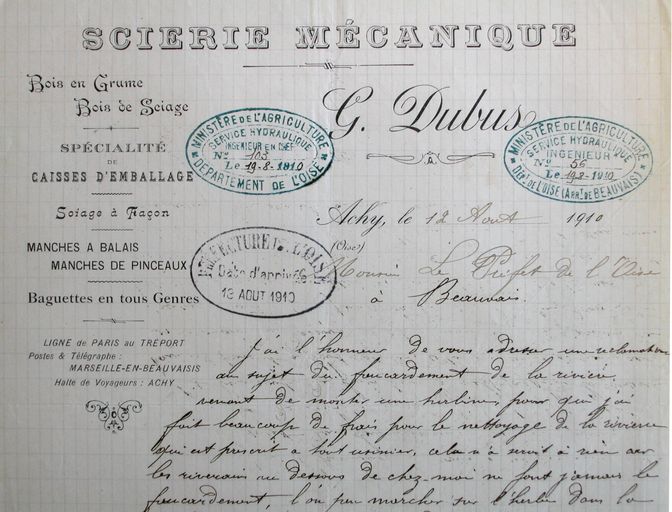 SCIERIE MÉCANIQUE
Bois en Grume
Bois de Sciage
SPÉCIALITÉ
DE
CAISSES D'EMBALLAGE
Sciage à Façon
MANCHES A BALAIS
MANCHES DE PINCEAUX
Baguettes en tous Genres
LIGNE de PARIS au TRÉPORT
Postes & Télégraphe :
MARSEILLE-EN-BEAUVAISIS
Halte de Voyageurs : ACHY
G. Dubus
A
MINISTÈRE DE L'AGRICULTURE
SERVICE HYDRAULIQUE
INGÉNIEUR EN CHEF
No 103
Le 19-8-1910
DÉPARTEMENT DE L'OISE
MINISTÈRE DE L'AGRICULTURE
SERVICE HYDRAULIQUE
INGÉNIEUR
No 56
Le 19.8-1910
DÉPt DE L'OISE (ARRt DE BEAUVAIS)
PRÉFECTURE DE L'OISE
Date d'arrivée
13 AOUT 1910
Achy, le 12 Aout 1910
(Oise)
Le Préfet de l'Oise
à Beauvais
J'ai l'honneur de vous adresser une réclamation
au sujet du foucardement de la rivière
venant de monter une turbine, pour qui j'ai
fait beaucoup de frais pour le nettoyage de la rivière
qui est prescrit a tout usinier, cela n'a servit à rien car
les riverains au dessous de chez-moi ne font jamais le
foucardement, l'on peu marcher sur l'herbe dans la